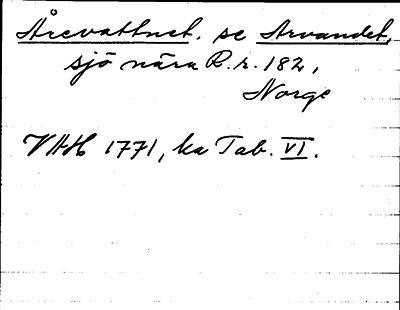 Årevattnet. se Arvandet,
sjö nära R.r. 182,
Norge
VAH 1771, ka Tab. VI.